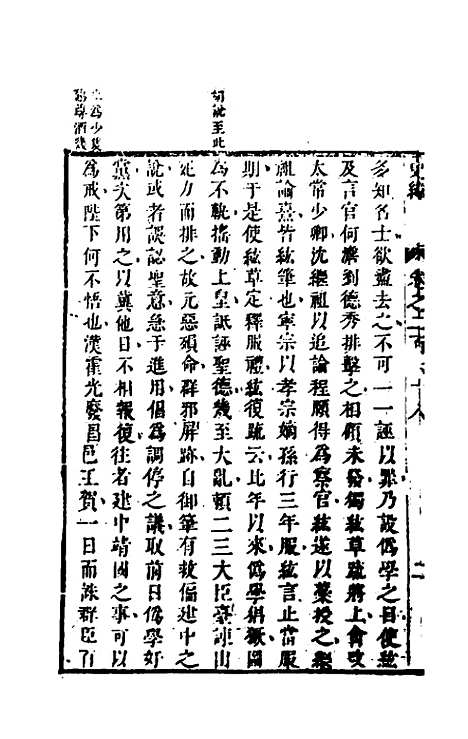 多知名士欲盡去之不可一一誣以罪乃設僞學之目使紘
及言官何澹劉德秀排擊之相顧未發獨紘草疏將上會改
太常少卿沈繼祖以追論程頤得爲察官紘遂以藁授之繼
祖論熹皆紘筆也寧宗以孝宗嫡孫行三年服紘言止當服
期于是使紘草定釋服禮紘復疏云比年以來僞學猖獗圖
爲不軌搖動上皇詆誣聖德幾至大亂賴二三大臣臺諫出
死力而排之故元惡殞命群邪屏跡自御筆有救偏建中之
說或者誤認聖意急于進用倡爲調停之議取前日僞學奸
黨次第用之以冀他日不相報復往者建中靖國之事可以
爲戒陛下何不悟也漢霍光廢昌邑王賀一日而誅群臣百
胡說至此